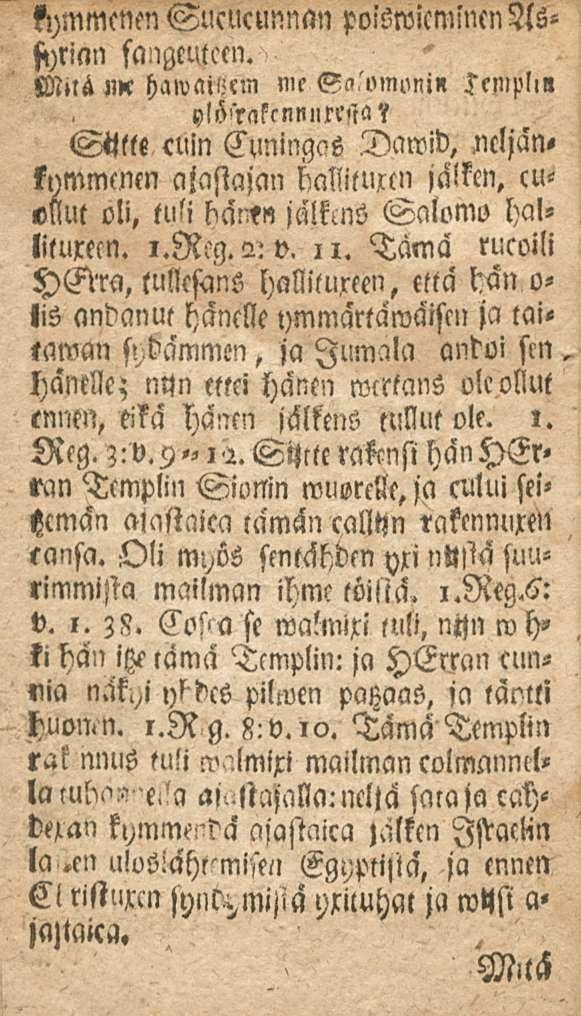 kymmenen Sucucunnan poiswieminen As-
syrian fangeuteen.
Mitä me hawaitzem me Salomonin Templin
ylösrakennuxesta?
Sijtte cuin Cuningas Dawid, neljän-
kymmenen ajastajan hallituxen jälken, cu-
ollut oli, tuli hänen jälkens Salomo hal-
lituxeen. 1. Reg. 2: v. 11. Tämä rucoili
HErra, tullesans hallituxeen, että hän o-
lis andanut hänelle ymmärtäwäisen ja tai-
tawan sydämmen, ja Jumala andoi sen
hänelle; nijn ettei hänen wertans ole ollut
ennen, eikä hänen jälkens tullut ole. 1.
Reg. 3: v. 9-12. Sijtte rakensi hän HEr-
ran Templin Sionin wuorelle, ja cului sei-
tzemän ajastaica tämän callijn rakennuxen
cansa. Oli myös sentähden yxi nijstä suu-
rimmista mailman ihme töistä. 1. Reg. 6:
v. 1. 38. Cosca se walmixi tuli, nijn wih-
ki hän itze tämä Templin: ja HErran cun-
nia näkyi yhdes pilwen patzaas, ja täytti
huonen. 1. Reg. 8: v. 10. Tämä Templin
rakennus tuli walmixi mailman colmannel-
la tuhannella ajastajalla: neljä sata ja cah-
dexan kymmendä ajastaica jälken Israelin
lasten uloslähtemisen Egyptistä, ja ennen
Christuxen syndymistä yxituhat ja wijsi a-
jastaica.
Mitä